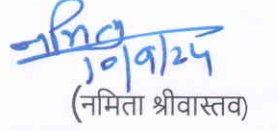 नमिता
10/9/24
(नमिता श्रीवास्तव)